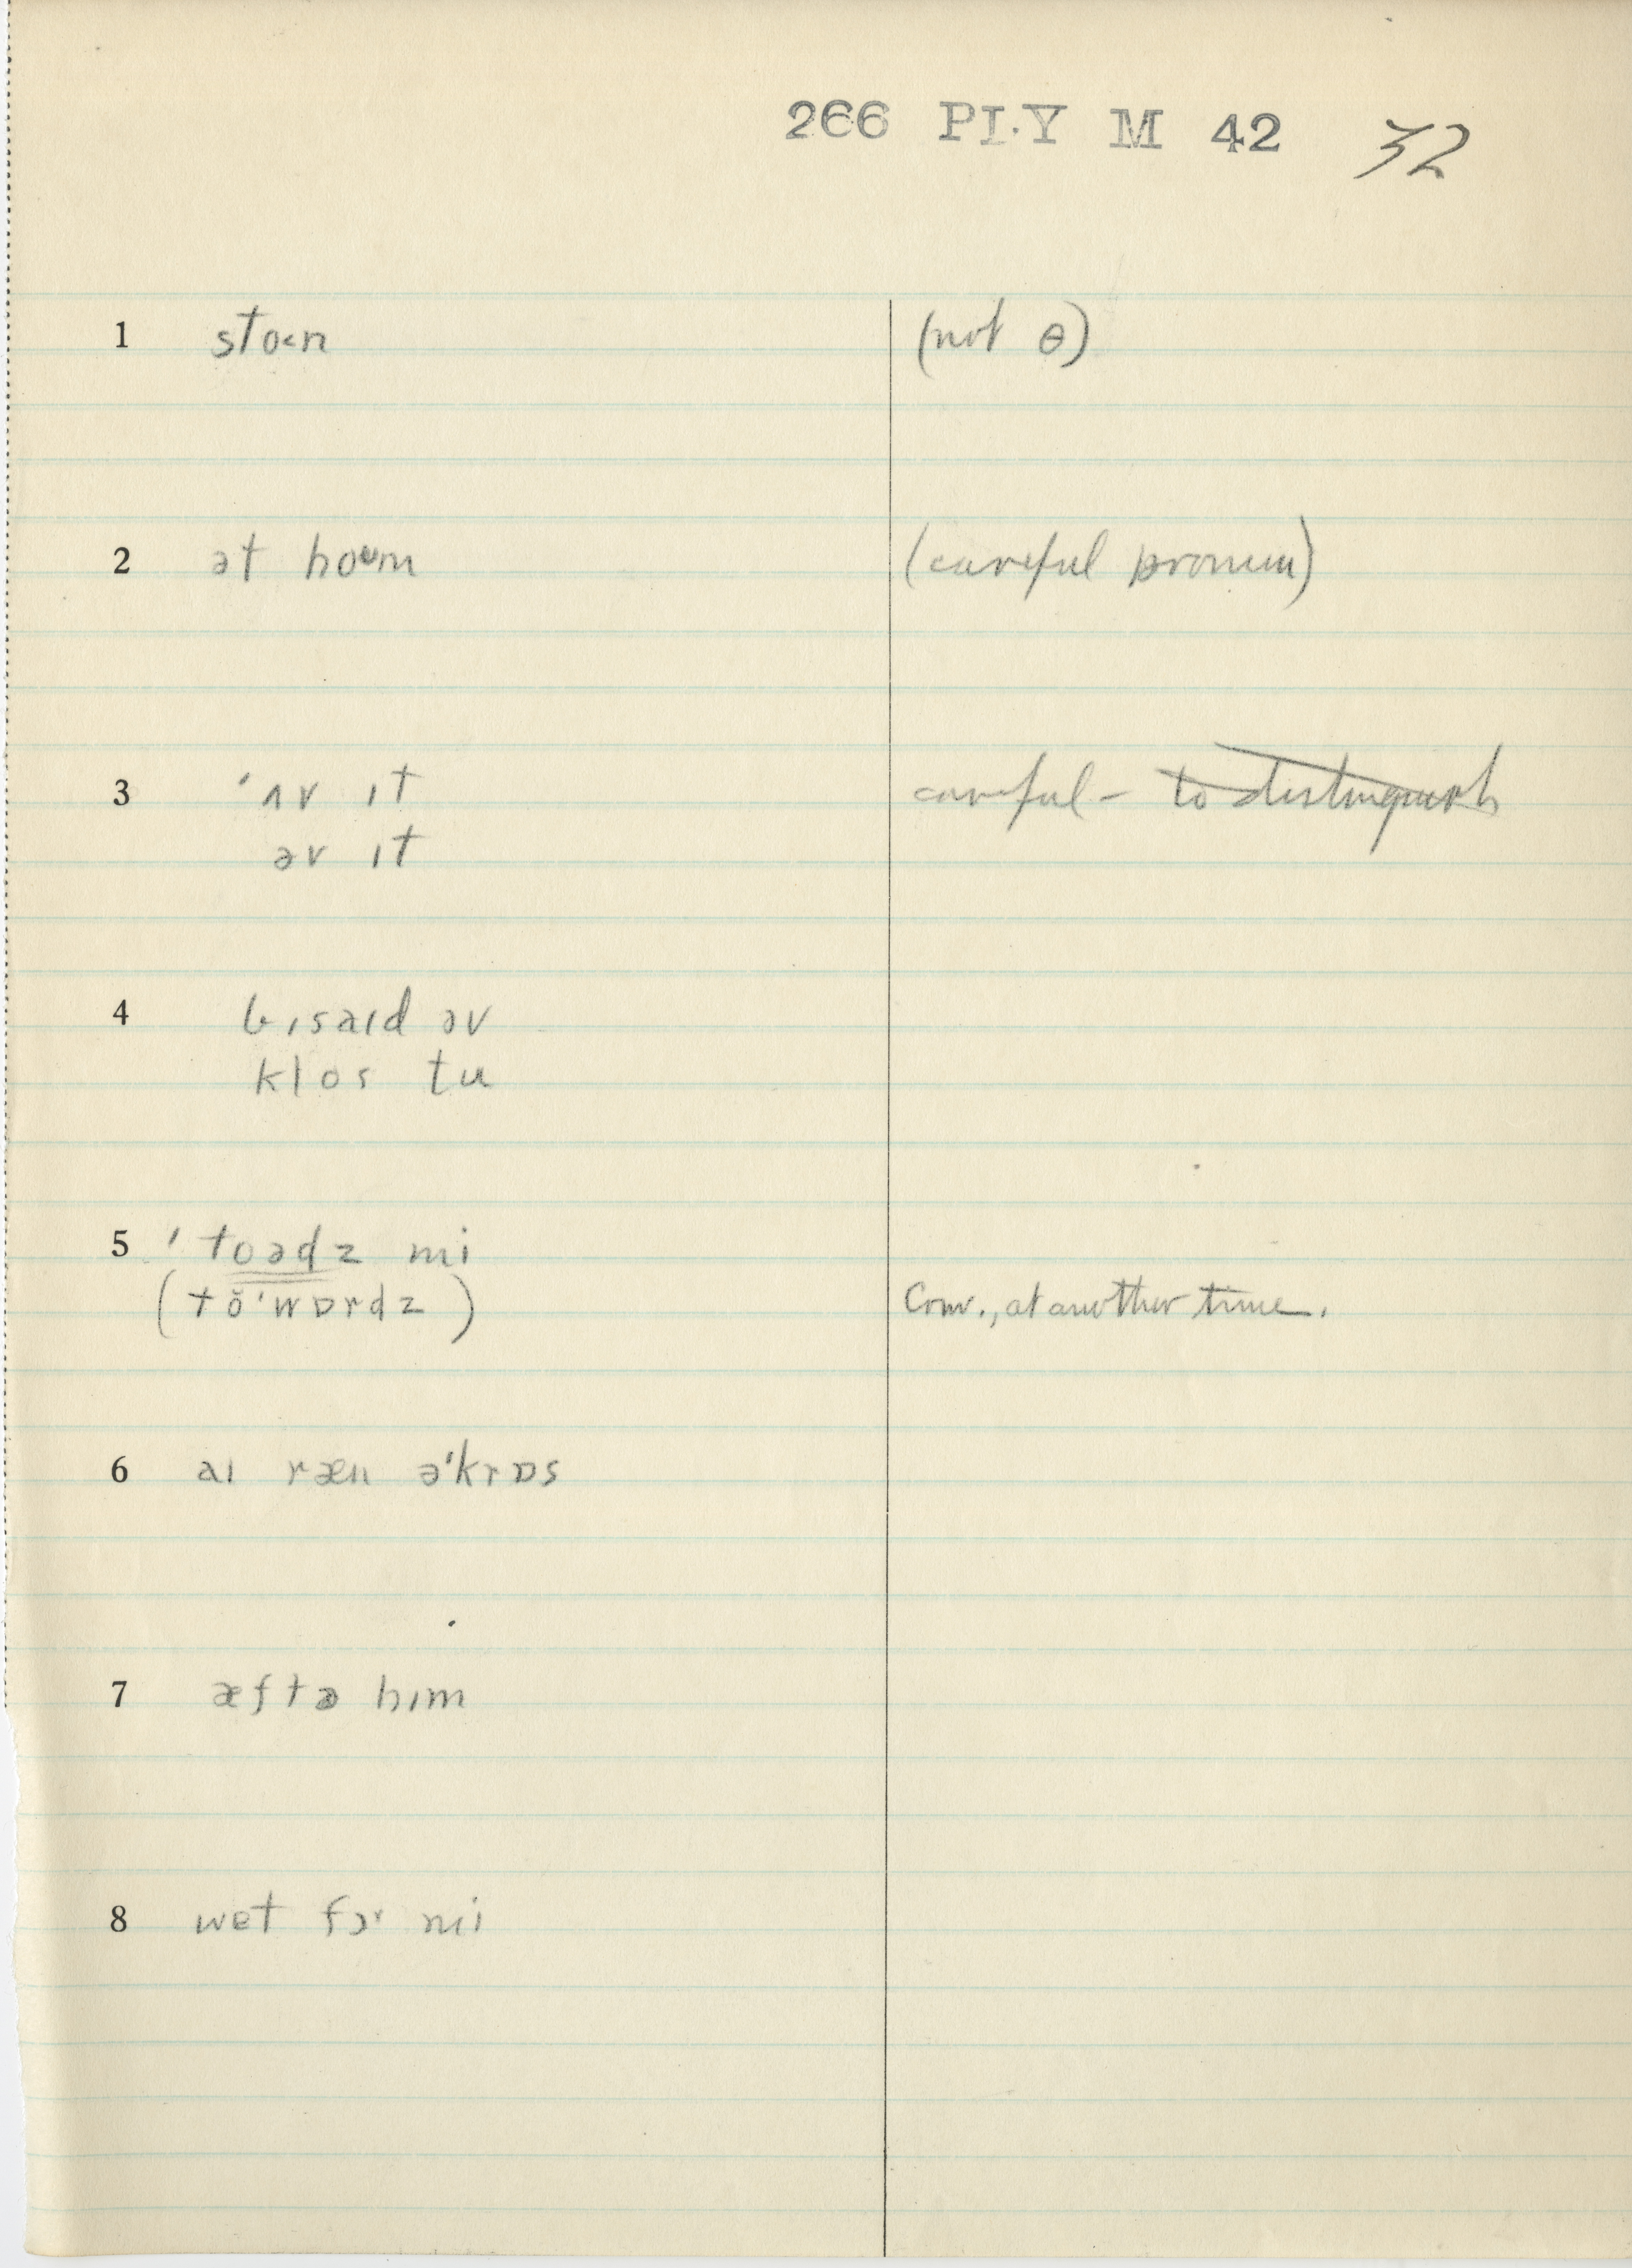 266 PLY M 42 32
1 sto˂n (not ɵ)
2 ət hoʊm (careful pronun)
3 ˈʌv ɪt careful – to distinguish
əv ɪt
4 bɪsaɪd əv
klos tu
5 ˈtoədz mi
(tŏˈwɒrdz) Conv., at another time.
6 aɪ ræn əˈkrɒs
7 æftə hɪm
8 wet fɔr mi